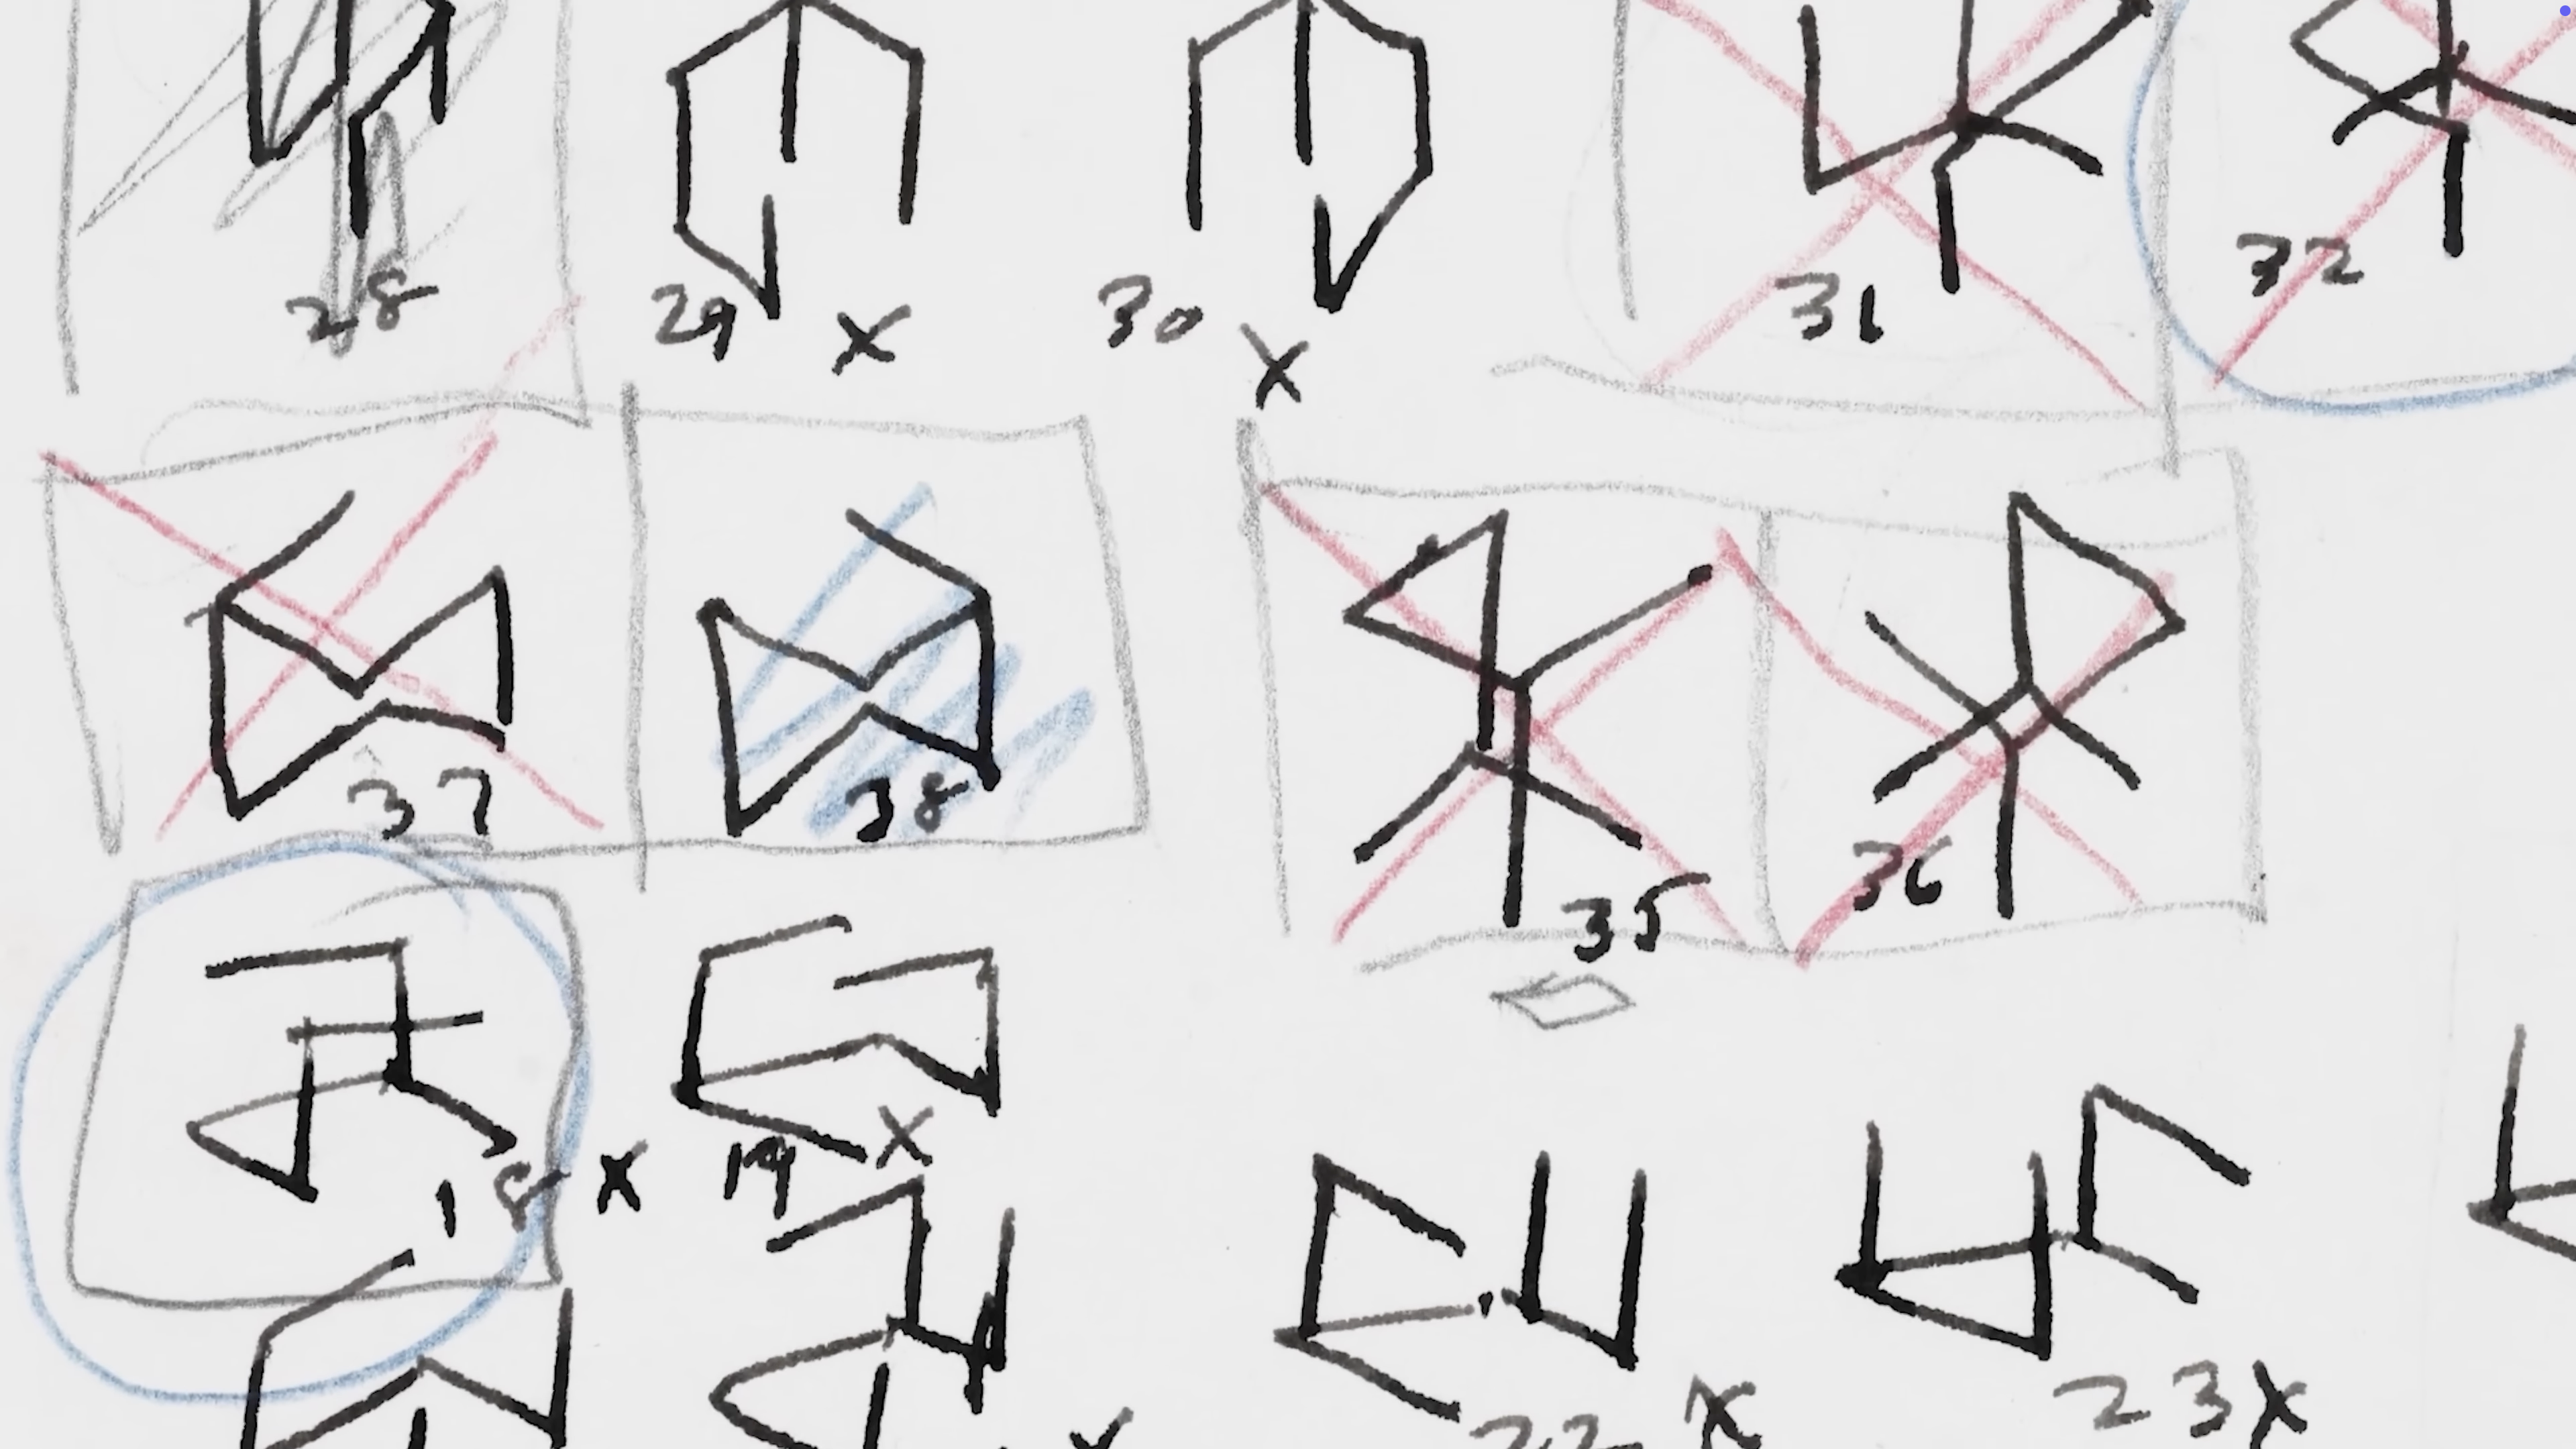 28 29 X 30 X 31 32
37 38 35 36
18 X 19 X
22 X 23 X
X